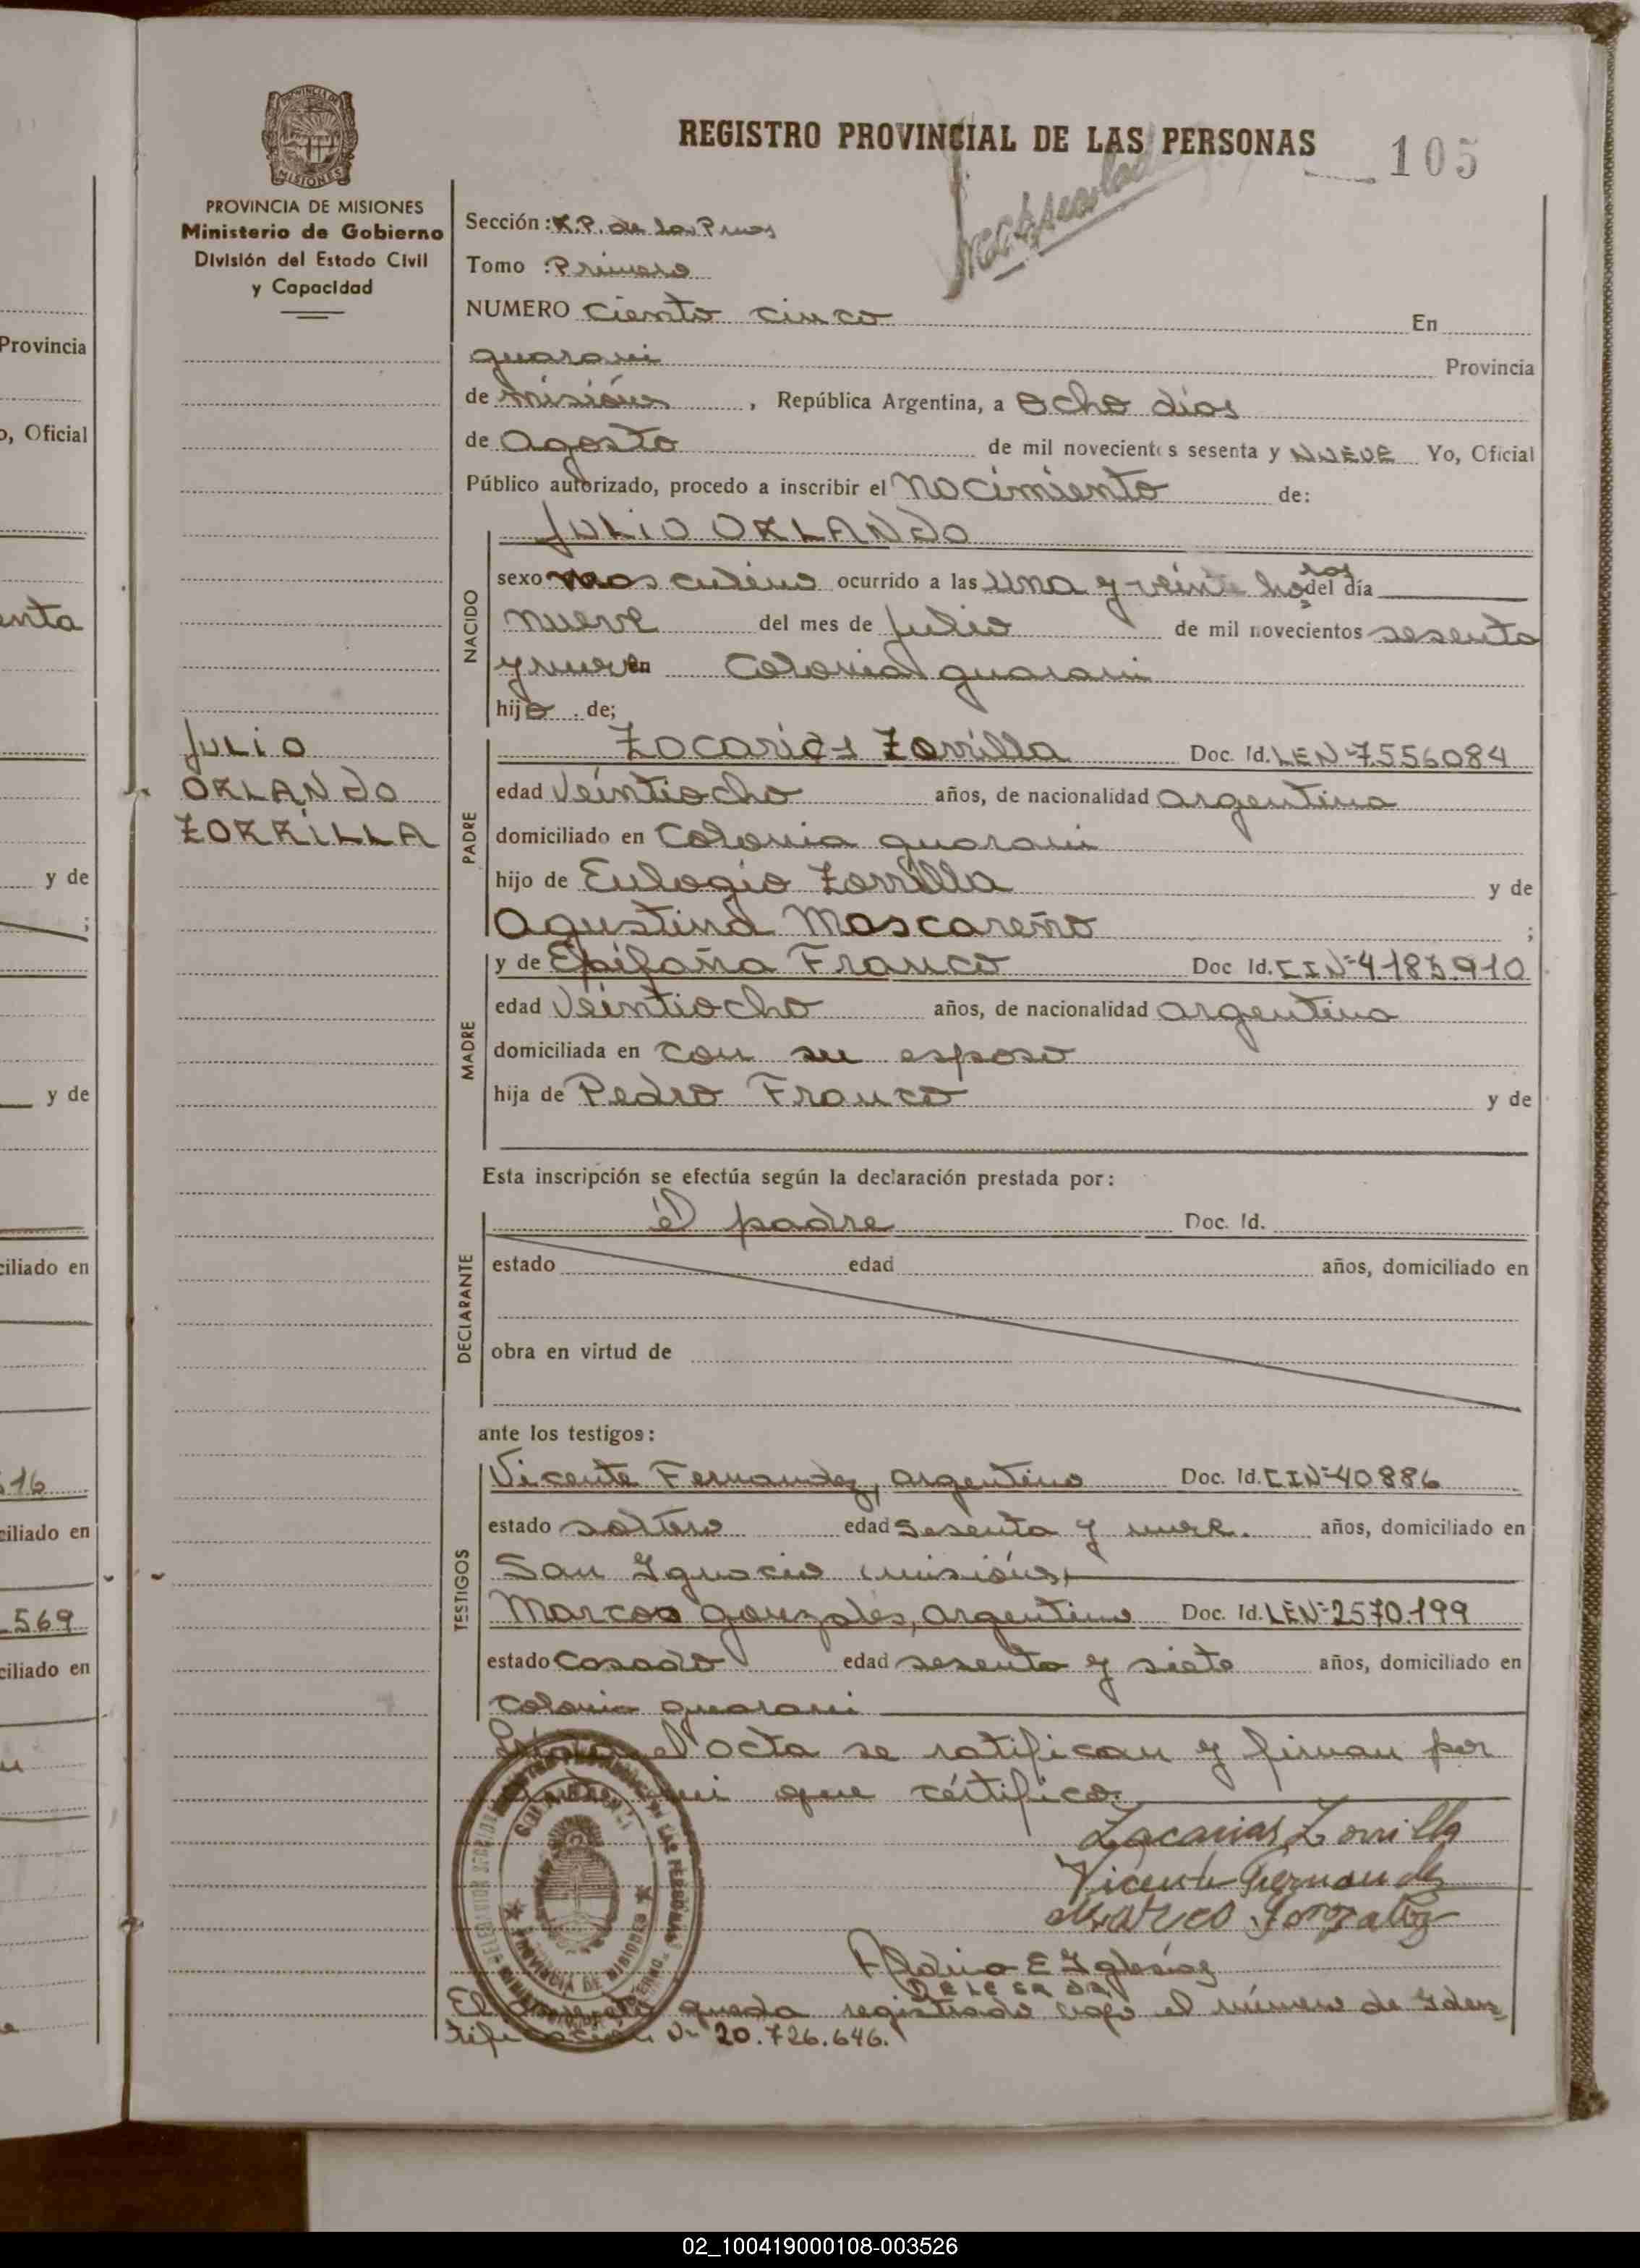 REGISTRO PROVINCIAL DE LAS PERSONAS
105
PROVINCIA DE MISIONES
Ministerio de Gobierno
División del Estado Civil
y Capacidad
Sección: R.P. de las Prnas
Tomo: Primero
NUMERO Ciento cinco En
guarani Provincia
de misiónes, República Argentina, a Ocho días
de Agosto de mil novecientos sesenta y NUEVE Yo, Oficial
Público autorizado, procedo a inscribir el Nacimiento de:
JULIO ORLANDO
NACIDO
sexo masculino ocurrido a las Una y veinte horas del día
nueve del mes de Julio de mil novecientos sesenta
y nueve en Colonia guarani
hijo de;
JULIO
ORLANDO
ZORRILLA
PADRE
Zacarias Zorrilla Doc. Id. LEN-7556084
edad Veintiocho años, de nacionalidad argentina
domiciliado en Colonia guarani
hijo de Eulogio Zorrilla y de
Agustina Mascareño ;
MADRE
y de Epifaña Franco Doc Id. CIN-4183910
edad Veintiocho años, de nacionalidad argentina
domiciliada en con su esposo
hija de Pedro Franco y de
Esta inscripción se efectúa según la declaración prestada por:
DECLARANTE
él padre Doc. Id.
estado edad años, domiciliado en
obra en virtud de
ante los testigos:
TESTIGOS
Vicente Fernandez, argentino Doc. Id. CIN-40886
estado soltero edad sesenta y nueve. años, domiciliado en
San Ygnacio (misiónes)
Marcos gonzales, argentino Doc. Id. LEN-2570.199
estado Casado edad sesenta y siete años, domiciliado en
colonia guarani
el acta se ratifican y firman por
mi que cértifico.
Zacarias Zorrilla
Vicente Fernandez
Marcos Gonzalez
E Yglesias
queda registrado bajo el número de Yden=
tificación Nº 20.726.646.
PROVINCIA DE MISIONES
02_100419000108-003526